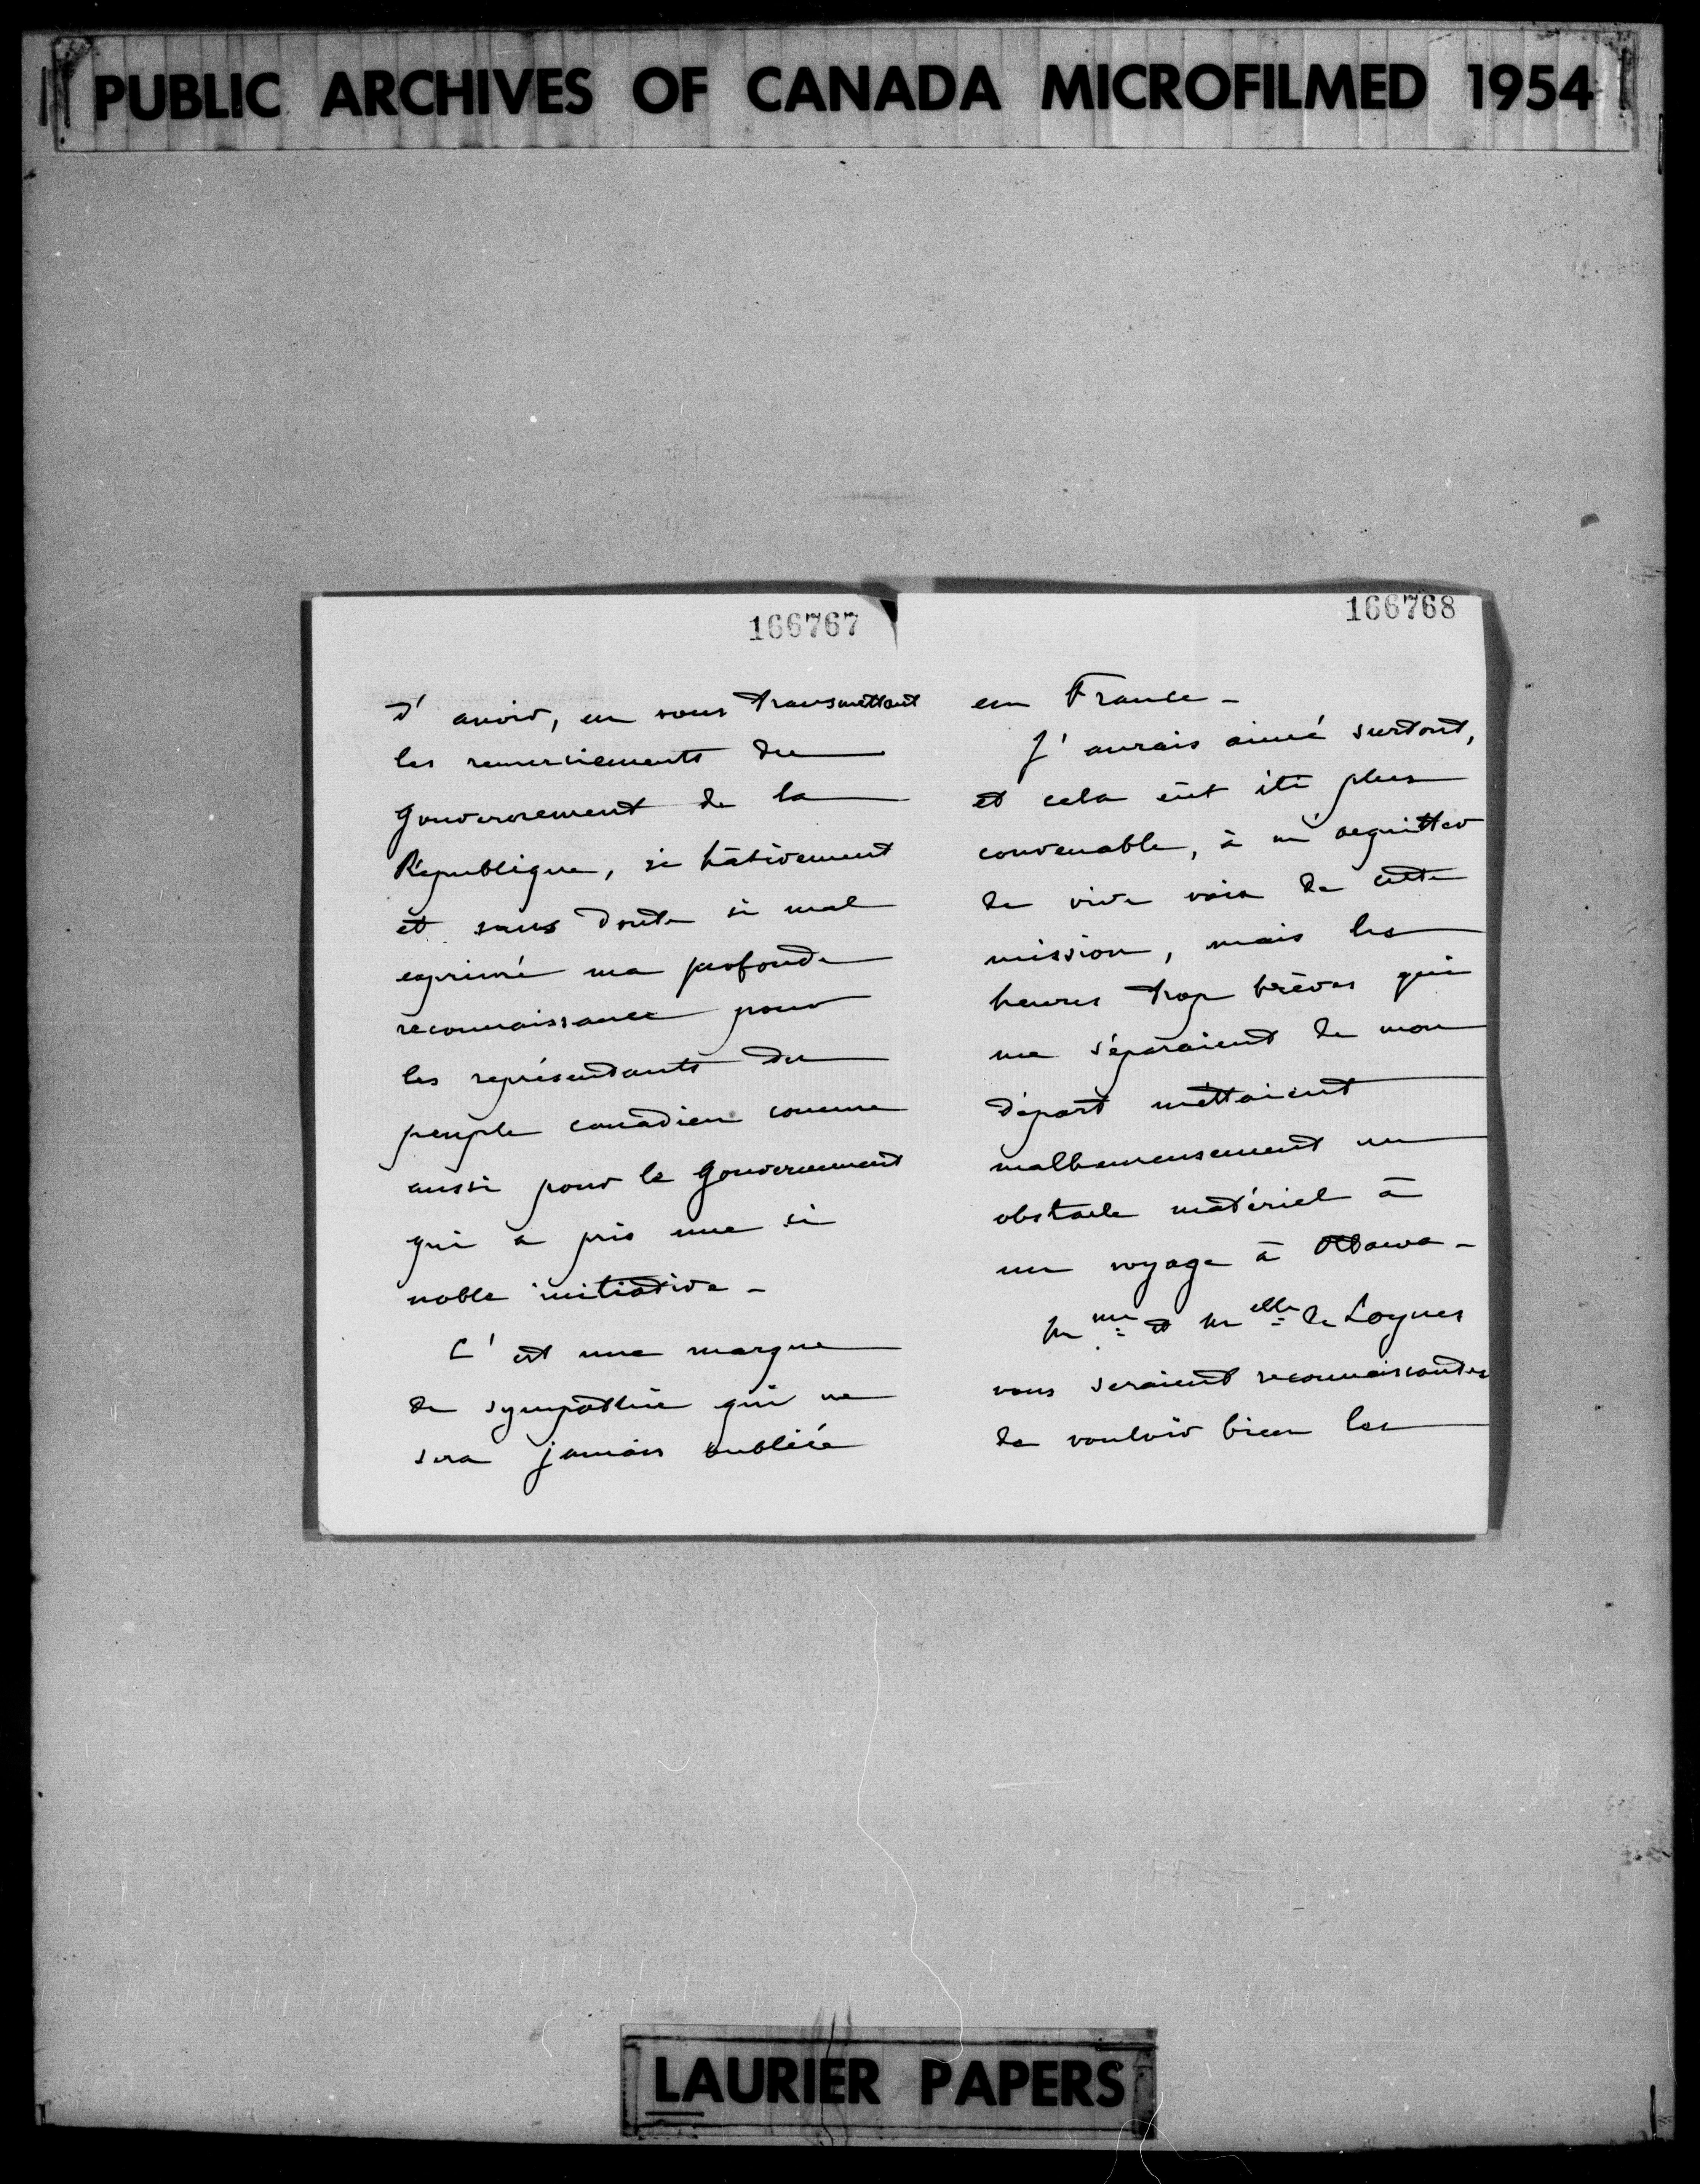 PUBLIC ARCHIVES OF CANADA MICROFILMED 1954
166767
d'avoir, en vous transmettant
les remerciements du
Gouvernement de la
République, si hâtivement
et sans doute si mal
exprimé ma profonde
reconnaissance pour
les représentants du
peuple canadien comme
aussi pour le Gouvernement
qui a pris une si
noble initiative -
C'est une marque
de sympathie qui ne
sera jamais oubliée
166768
en France -
J'aurais aimé surtout,
et cela eût été plus
convenable, à m'acquitter
de vive voix de cette
mission, mais les
heures trop brèves qui
me séparaient de mon
départ mettaient
malheureusement un
obstacle matériel à
un voyage à Ottawa -
Mme et Melle de Loynes
vous seraient reconnaissantes
de vouloir bien les
LAURIER PAPERS